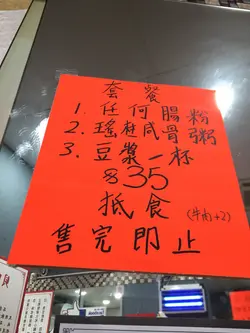 套餐
1. 任何腸粉
2. 瑤柱咸骨粥
3. 豆漿一杯
$35
抵食
(牛肉+2)
售完即止